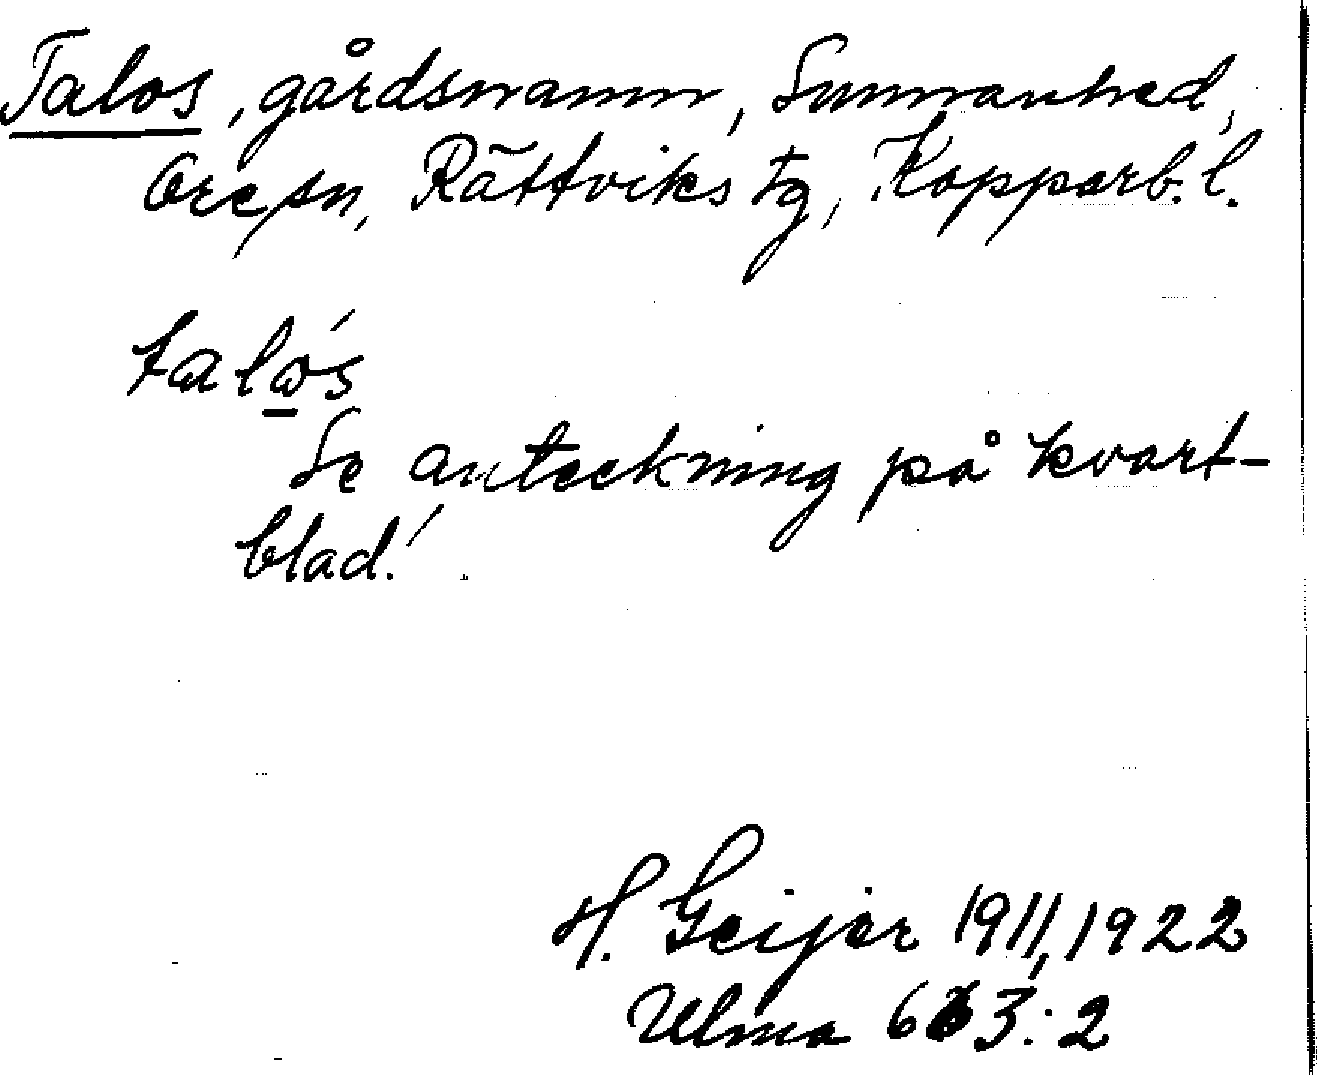 Talos, gårdsnamn, Sunnanhed,
Ore sn, Rättviks tg, Kopparb. l.
taló̲s
Se anteckning på kvart-
blad!
H. Geijer 1911, 1922
Ulma 663:2